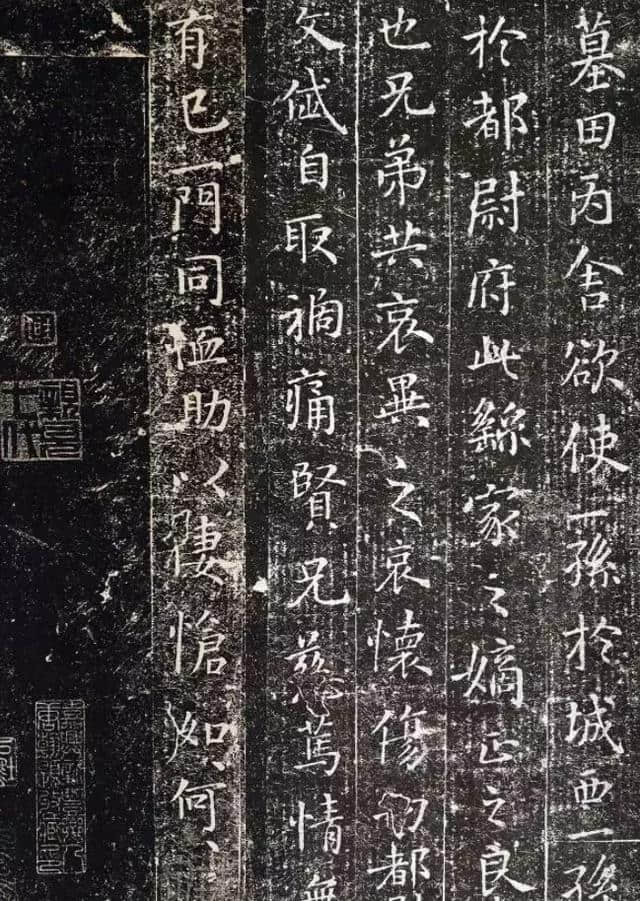 墓田丙舍欲使一孫於城西一孫
於都尉府此繇家之嫡正之良
也兄弟共哀異之哀懷傷切都
文岱自取禍痛賢兄慈篤情無
有已一門同恤助以悽愴如何